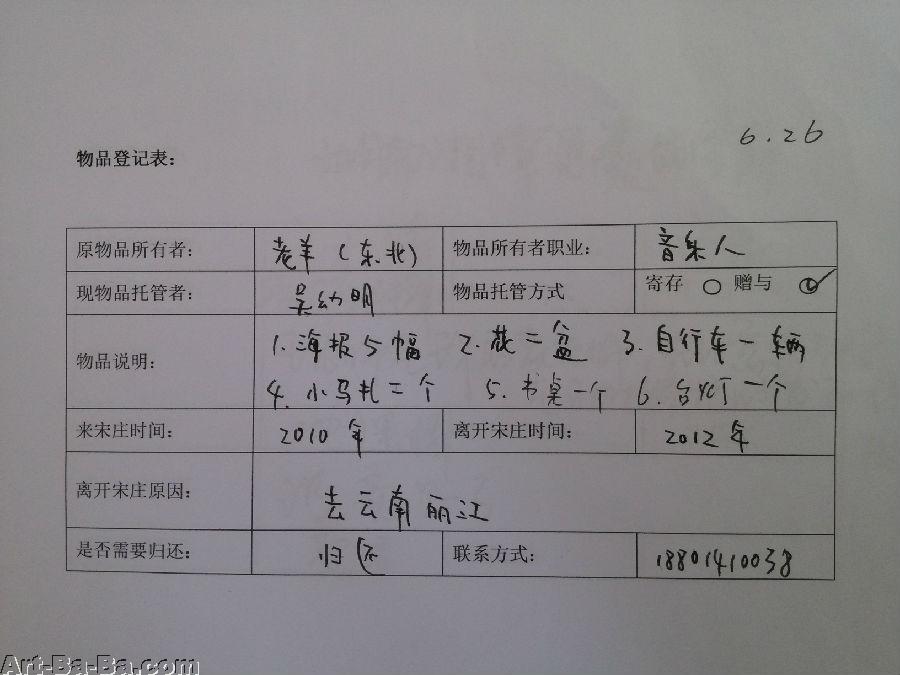 6.26
物品登记表：
原物品所有者： 老羊（东北） 物品所有者职业： 音乐人
现物品托管者： 吴幼明 物品托管方式 寄存 ○ 赠与 ☑
物品说明： 1. 海报5幅 2. 花二盆 3. 自行车一辆
4. 小马扎二个 5. 书桌一个 6. 台灯一个
来宋庄时间： 2010年 离开宋庄时间： 2012年
离开宋庄原因： 去云南丽江
是否需要归还： 归还 联系方式： 18801410038
Art-Ba-Ba.com